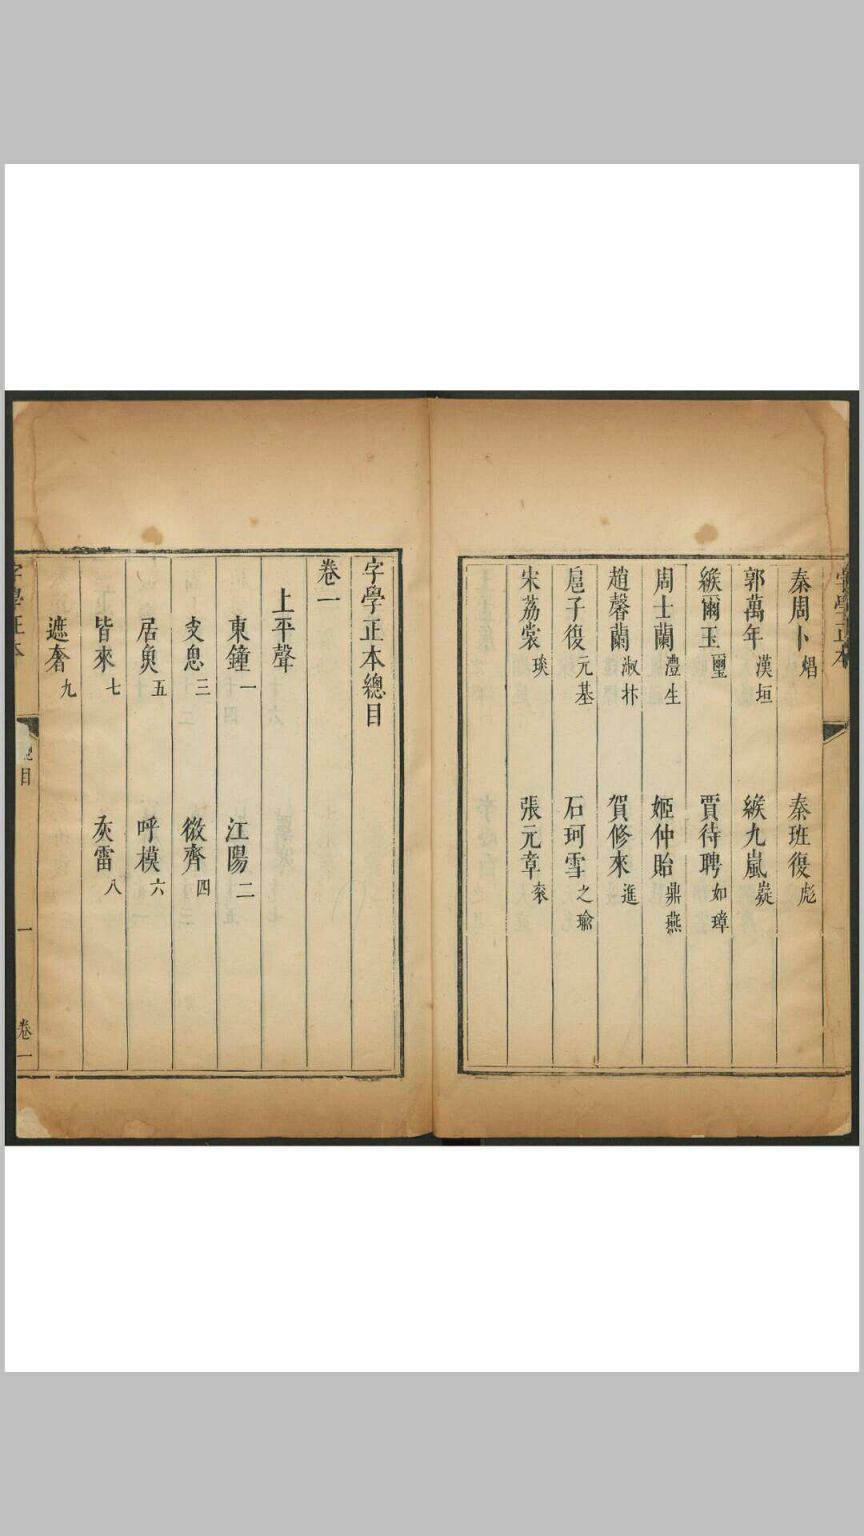 秦周卜焻 秦班復彪
郭萬年漢垣 緱九嵐嶷
緱爾玉璽 賈待聘如璋
周士蘭澧生 姬仲貽鼎燕
趙馨蘭淑 賀修來進
扈子復元基 石珂雪之瑜
宋荔裳琰 張元章
字學正本總目
卷一
上平聲
東鐘一 江陽二
支思三 微齊四
居魚五 呼模六
皆來七 灰雷八
遮奢九
字學正本
目
一
卷一
字學正本